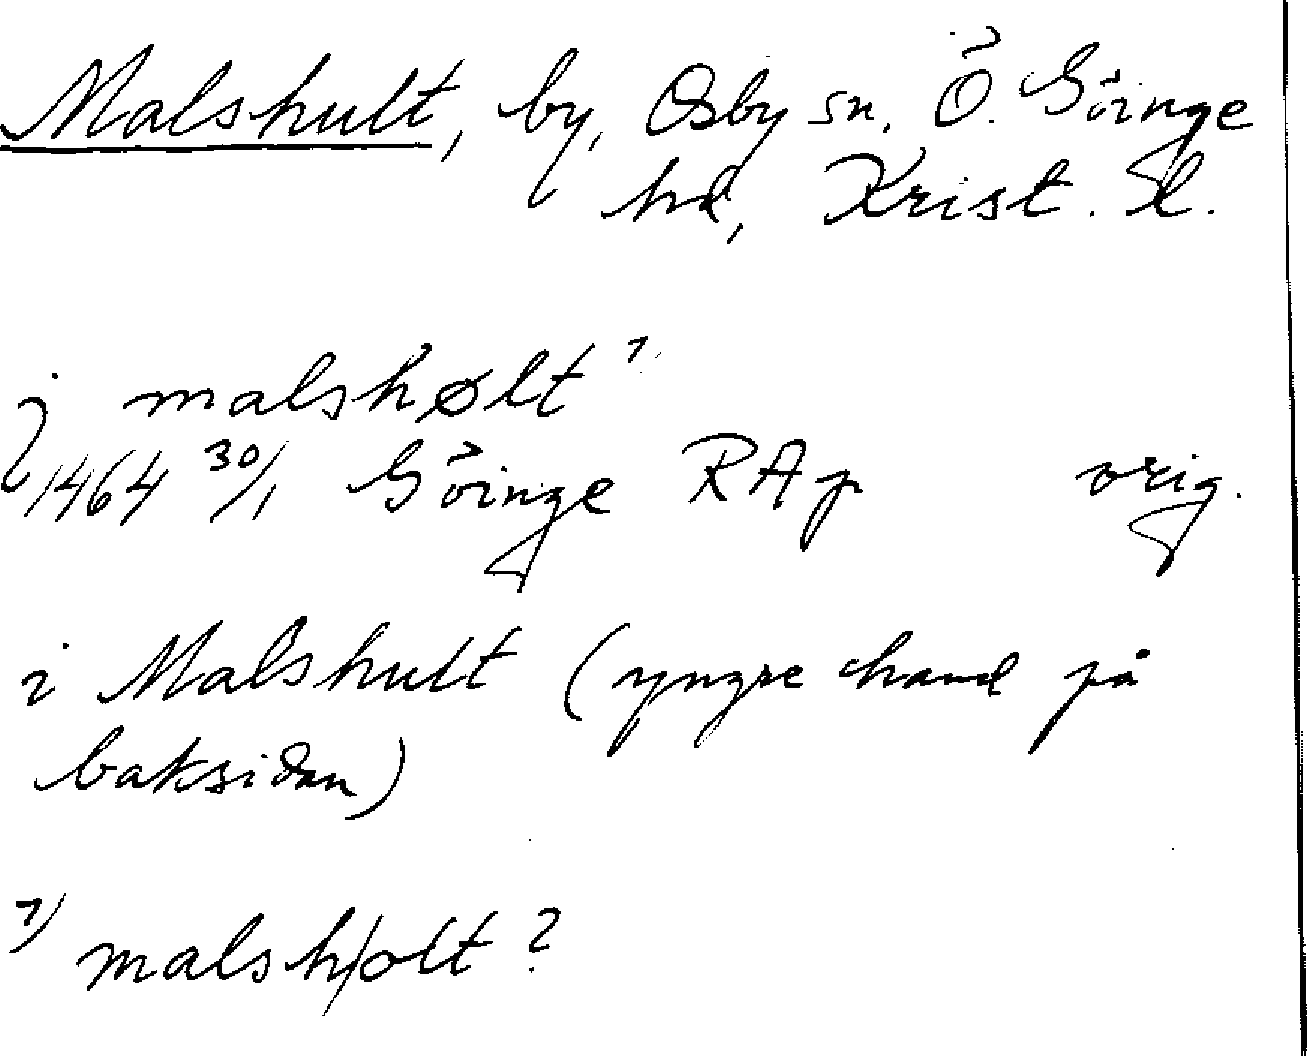 Malshult, by, Osby sn. Ö. Göinge
hd, Krist. l.
j malshølt ¹
1464 30/1 Göinge RAp orig.
i Malshult (yngre hand på
baksidan)
¹) malsholt?